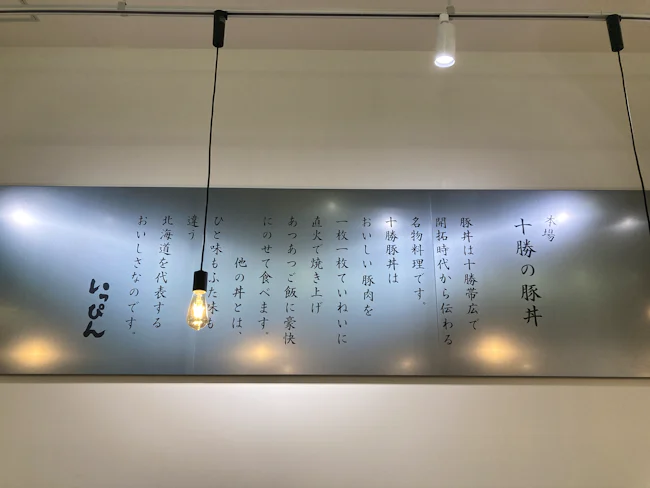 本場
十勝の豚丼
豚丼は十勝帯広で
開拓時代から伝わる
名物料理です。
十勝豚丼は
おいしい豚肉を
一枚一枚ていねいに
直火で焼き上げ
あつあつご飯に豪快
にのせて食べます。
他の丼とは、
ひと味もふた味も
違う
北海道を代表する
おいしさなのです。
いっぴん